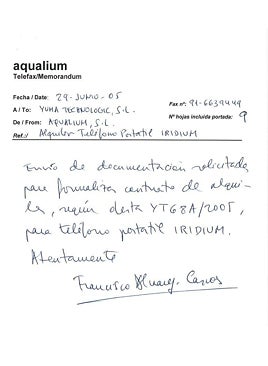 aqualium
Telefax/Memorandum
Fecha / Date: 29-JUNIO-05
Fax nº: 91-6639449
A / To: YUMA TECHNOLOGIC, S.L.
Nº hojas incluida portada: 9
De / From: AQUALIUM, S.L.
Ref.: Alquiler Teléfono Portatil IRIDIUM
Envío de documentación solicitada
para formalizar contrato de alqui-
ler, según oferta YT68A/2005,
para teléfono portatil IRIDIUM.
Atentamente
Francisco Alvarez-